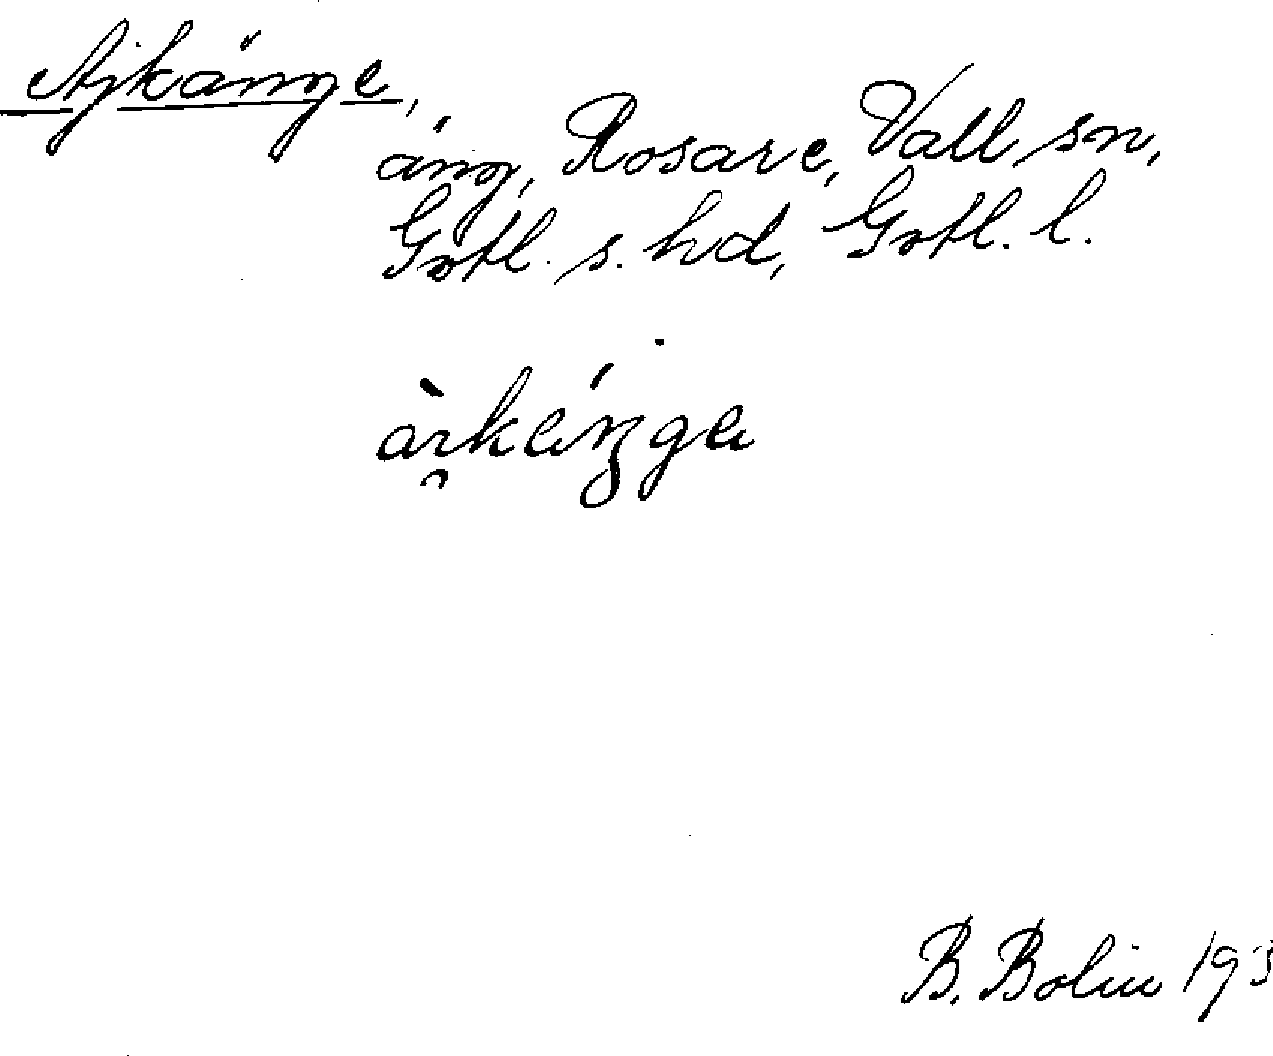 Ajkänge,
äng, Rosare, Vall sn,
Gotl. s. hd, Gotl. l.
B. Bolin 193